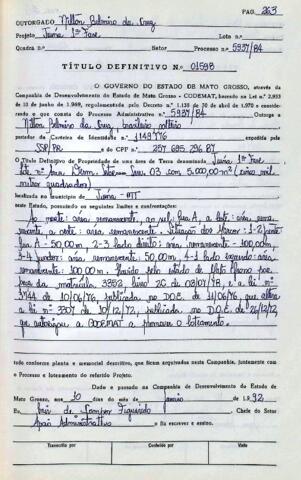 PAG. 263
OUTORGADO Nilton Belmiro da Cruz
Projeto Juina 1ª Fase Lote n.º
Quadra n.º Setor Processo n.º 5937/84
TÍTULO DEFINITIVO N.º 01598
O GOVERNO DO ESTADO DE MATO GROSSO, através da
Companhia de Desenvolvimento do Estado de Mato Grosso - CODEMAT, baseado na Lei n.º 2.933
de 13 de junho de 1.969, regulamentada pelo Decreto n.º 1.138 de 30 de abril de 1.970 e considerando
o que consta do Processo Administrativo n.º 5937/84 Outorga a
Nilton Belmiro da Cruz, brasileiro
portador da Carteira de Identidade n.º 1149776 expedida pela
SSP/PR e do CPF n.º 257 695 296 87
O Título Definitivo de Propriedade de uma área de Terra denominada Juina 1ª Fase
03 com 5.000,00m² (cinco mil
metros quadrados)
localizada no município de Juina-MT
neste Estado, possuindo os seguintes limites e confrontações:
Ao norte: área remanescente, ao sul: Rua A, a leste: área rema-
nescente, a oeste: área remanescente. Situação dos Marcos: 1-2
Rua A - 50,00m, 2-3 lado direito: área remanescente - 100,00m,
3-4 fundos: área remanescente, 50,00m, 4-1 lado esquerdo: área re-
manescente: 100,00m. Havido pelo estado de Mato Grosso por
da matrícula 3352, livro 2C de 03/07/78, e a lei nº
3744 de 10/06/76, publicada no D.O.E. de 11/06/76, que altera
a lei nº 3307 de 10/12/72, publicada no D.O.E. de 26/12/72,
que autorizou a CODEMAT a promover o loteamento.
tudo conforme planta e memorial descritivo, que ficam arquivados nesta Companhia, juntamente com
o Processo e loteamento do referido Projeto.
Dado e passado na Companhia de Desenvolvimento do Estado de
Mato Grosso, aos 30 dias do mês de de 1.992.
Eu de Campos Figueiredo Chefe do Setor
Apoio Administrativo o fiz escrever e assino.
Transcrito por Conferido por Visto